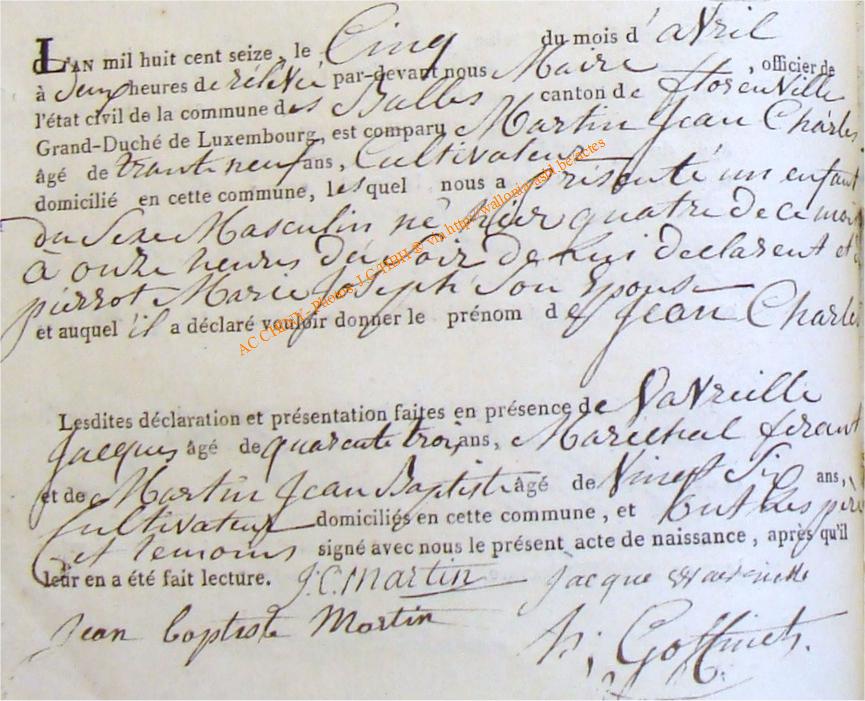 L'AN mil huit cent seize, le Cinq du mois d' avril
à deux heures de rélévé par-devant nous Maire , officier de
l'état civil de la commune des Bulles canton de florenville
Grand-Duché de Luxembourg, est comparu Martin Jean Charles
âgé de trante neuf ans, Cultivateur
domicilié en cette commune, lesquel nous a présenté un enfant
du Sexe Masculin né hier quatre de ce mois
à onze heures du soir de lui déclarent et de
pierrot Marie Joseph Son Epouse
et auquel il a déclaré vouloir donner le prénom de Jean Charles
AC CHINY, Photos, LGHBH © via http://wallonia-asbl.be/actes
Lesdites déclaration et présentation faites en présence de Vavreille
Jacques âgé de quarente trois ans, Maréchal ferant
et de Martin Jean Baptiste âgé de Vinest Six ans,
Cultivateur domiciliés en cette commune, et ont les père
et temoins signé avec nous le présent acte de naissance, après qu'il
leur en a été fait lecture. J.C. Martin Jacque
Jean baptiste Martin Goffinet.